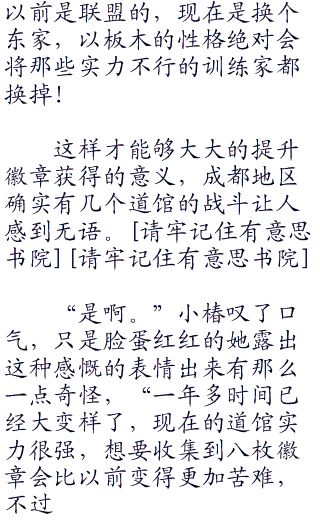 以前是联盟的，现在是换个
东家，以板木的性格绝对会
将那些实力不行的训练家都
换掉！
这样才能够大大的提升
徽章获得的意义，成都地区
确实有几个道馆的战斗让人
感到无语。[请牢记住有意思
书院] [请牢记住有意思书院]
“是啊。”小椿叹了口
气，只是脸蛋红红的她露出
这种感慨的表情出来有那么
一点奇怪，“一年多时间已
经大变样了，现在的道馆实
力很强，想要收集到八枚徽
章会比以前变得更加苦难，
不过